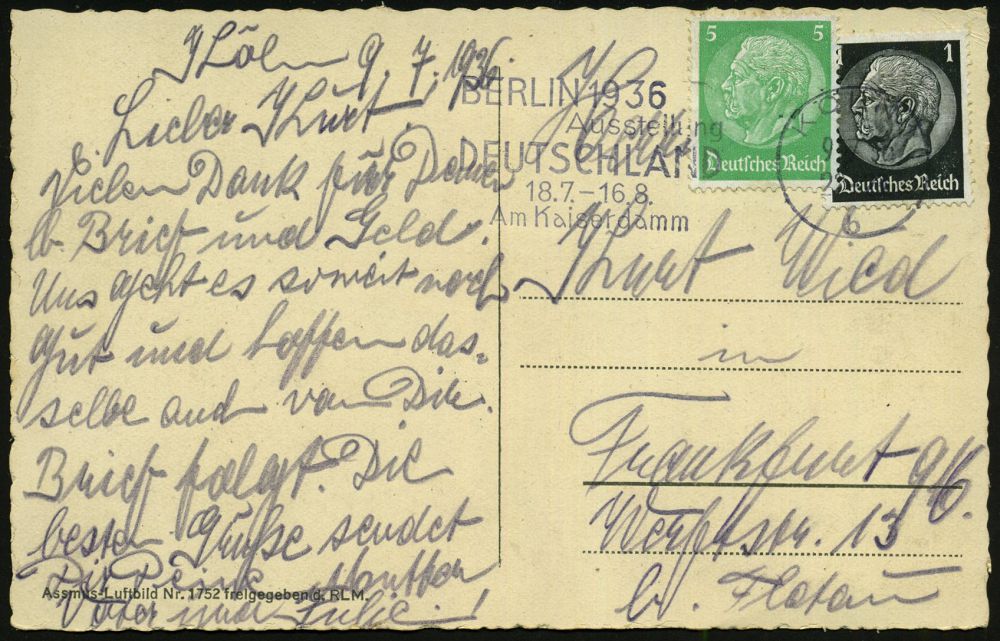 Köln 9.7.1936
Lieber Kurt.
Vielen Dank für Deinen
lb. Brief und Geld.
Uns geht es soweit noch
gut und hoffen das-
selbe auch von Dir.
Brief folgt. Die
besten Grüße sendet
Dir Deine Mutter
Vater und Julie.!
Assmus-Luftbild Nr. 1752 freigegeben d. RLM.
BERLIN 1936
Ausstellung
DEUTSCHLAND
18.7.-16.8.
Am Kaiserdamm
5 5
Deutsches Reich
1
Deutsches Reich
KÖLN
b
Herrn
Kurt Wied
in
Frankfurt a/M.
Werftstr. 13
b.